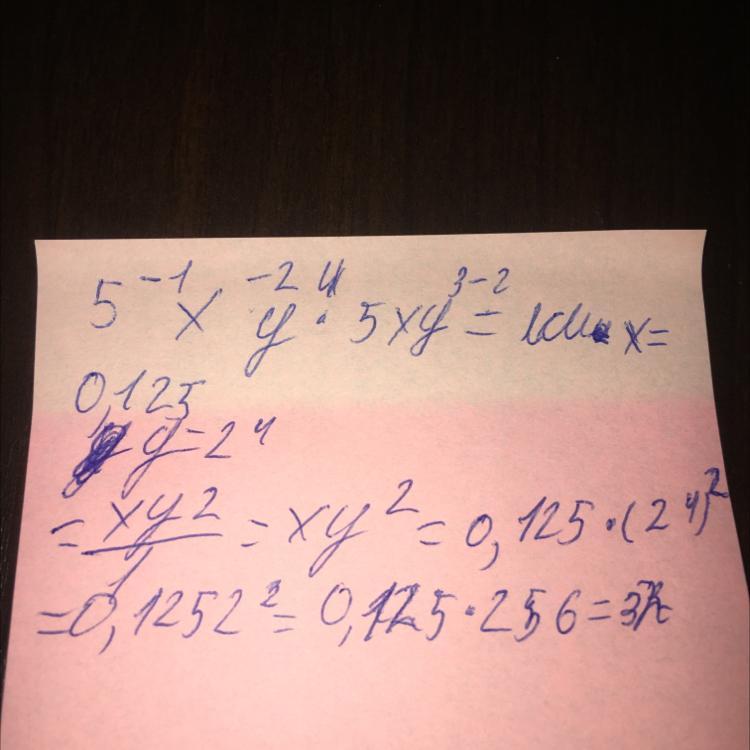 5⁻¹ x⁻² y⁴ · 5xy³⁻² = x=
0,125
y=2⁴
= xy2/1 = xy² = 0,125·(2⁴)²
=0,1252² = 0,125·256=32